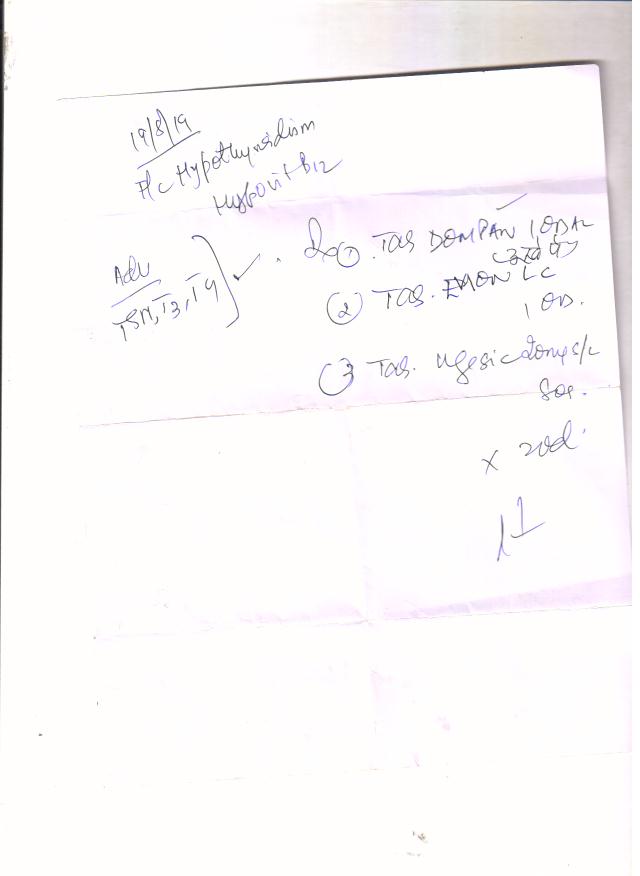 19/8/19
F/c Hypothyroidism
Hypovit B12
Adv
TSH, T3, T4
Rx ① TAB DOMPAN 1 OD AC
② TAB. LC
1 OD.
③ TAB. Ugesic
SOS.
x 20d.